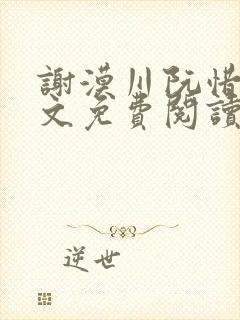 謝漠川阮惜
文免費閱讀
逆世